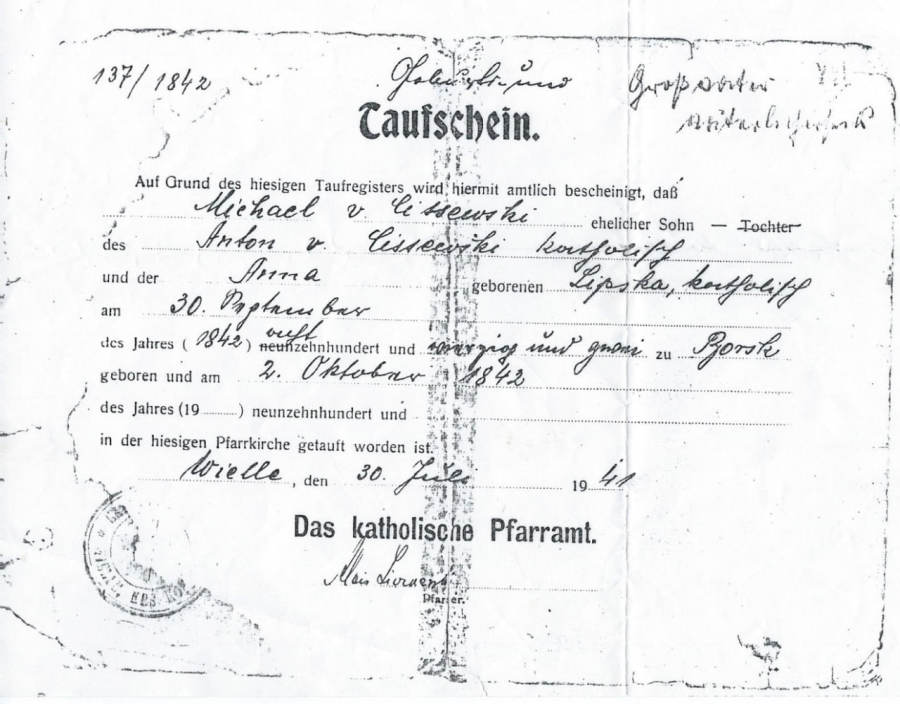 137/1842
Geburts- und
Großvater
mütterlicherseits
Taufschein.
Auf Grund des hiesigen Taufregisters wird hiermit amtlich bescheinigt, daß
Michael v. Cissewski ehelicher Sohn — Tochter
des Anton v. Cissewski katholisch
und der Anna geborenen Lipska, katholisch
am 30. September
des Jahres (1842) neunzehnhundert und acht vierzig und zwei zu Borsk
geboren und am 2. Oktober 1842
des Jahres (19 ) neunzehnhundert und
in der hiesigen Pfarrkirche getauft worden ist.
Wielle, den 30. Juli 1941
Das katholische Pfarramt.
Pfarrer.